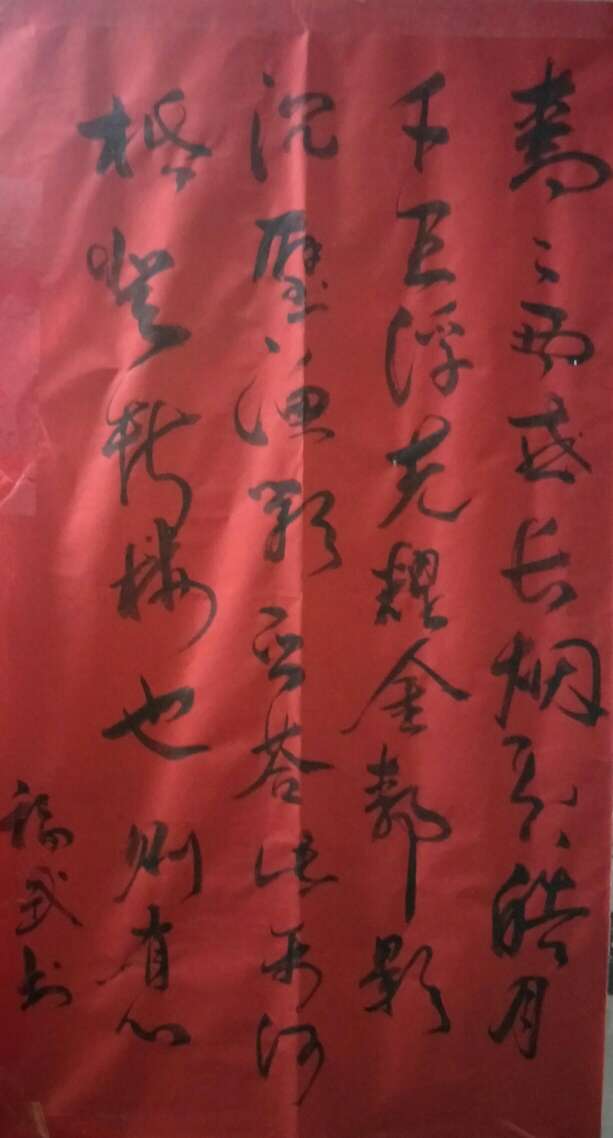 而或长烟一空皓月
千里浮光耀金静影
沉璧渔歌互答此乐何
极登斯楼也则有心
福武书